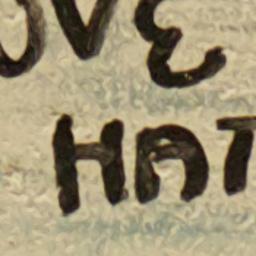 OVE
HAT